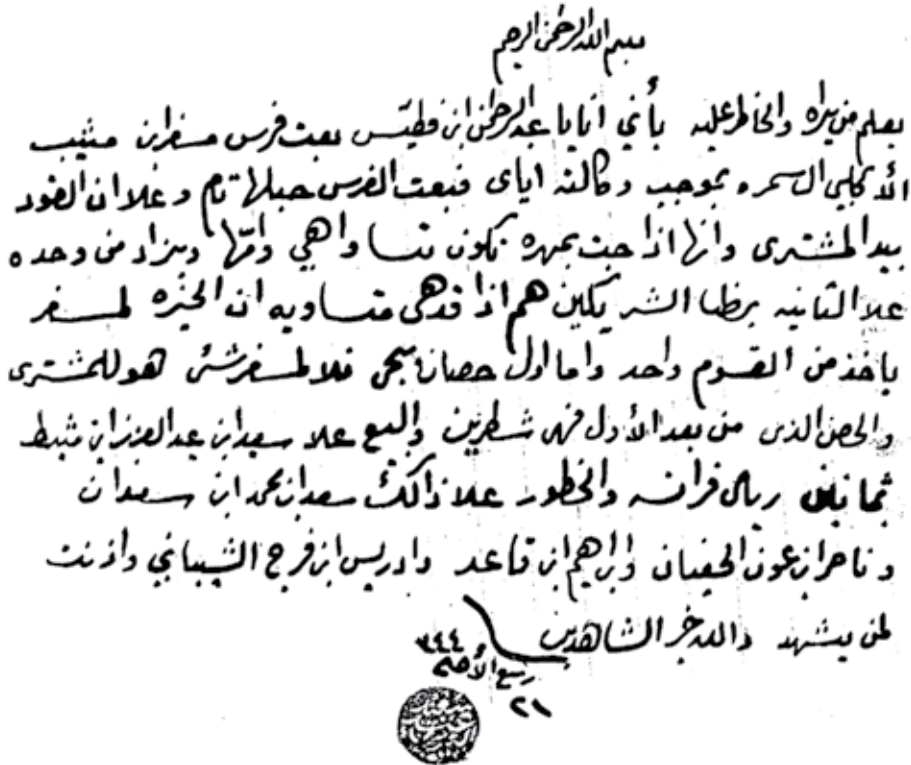 بسم الله الرحمن الرحيم
يعلم من يراه والناظر عليه بأني انا يا عبد الرحمن ابن فطيس بعت فرس مسفر ابن منيب
الأكلبي السمره بموجب وكالته اياي فبعت الفرس حبلها تام وعلا ان القود
بيد المشتري وانها اذا جت بمهره تكون تساواهي وامها ويزاد من وحده
علا الثانيه برضا الشريكين هم اذا قد هي متساويه ان الخيره لمسفر
ياخذ من القسوم واحد واما اول حصان يجي فلا لمسفر شئ هو للمشتري
والحصن الذي من بعد الأول فهي شطرين والبيع علا سعد ابن عبد العزيز ابن
ثمانين ريال فرانسه والحظور علا ذالك سعد ابن محمد ابن سعدان
وناصر ابن عون الحفيان وابراهيم ابن قاعد وادريس ابن فرج الشيباني واذنت
لمن يشهد والله خير الشاهدين
٣٤٤
ربيع الأصح
٢١